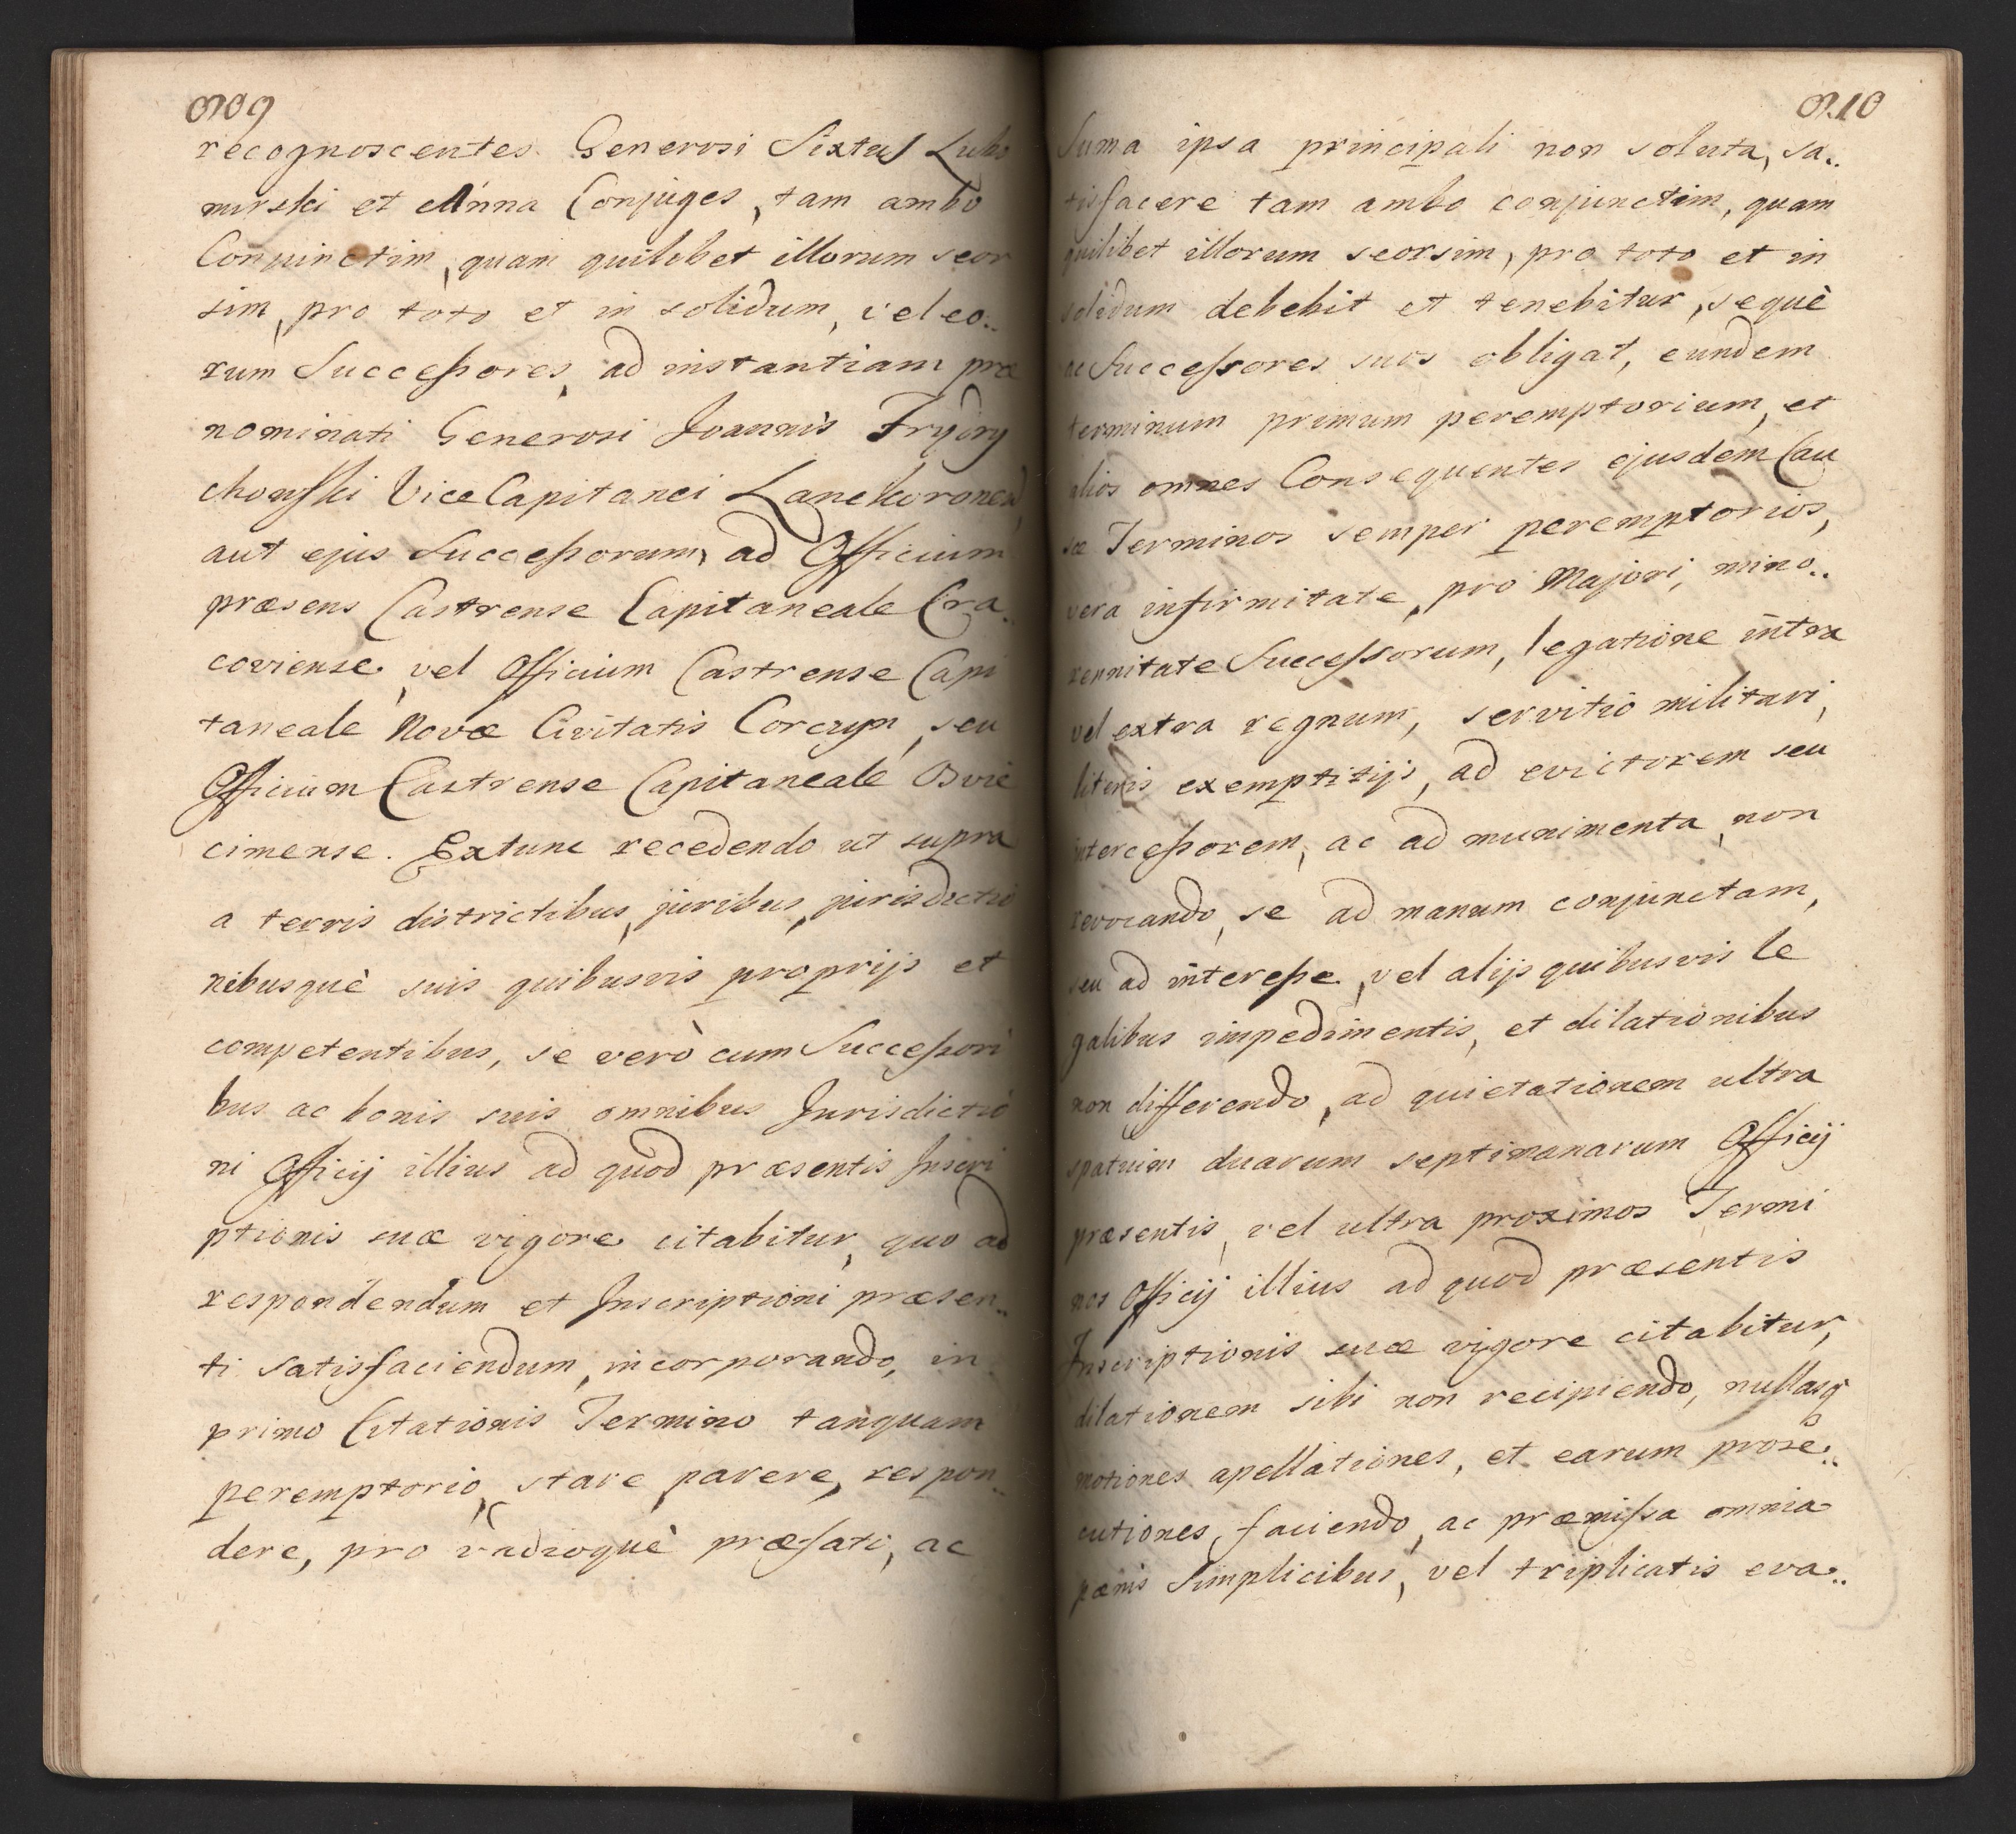 709
recognoscentes. Generosi Sixtus Lubo
mirski et Anna Conjuges, tam ambo
Conjunctim, quam quilibet illorum seor
sim, pro toto et in solidum, vel eo..
rum Successores, ad instantiam præ
nominati Generosi Joannis Frydry
chowski Vice Capitanei Lanckoronen,
aut ejus Successorum, ad Officium
præsens Castrense Capitaneale Cra..
coviense, vel Officium Castrense Capi
taneale Novæ Civitatis Corczyn, seu
Officium Castrense Capitaneale Osvie
cimense. Extunc recedendo ut supra
a terris districtibus, juribus, jurisdictio
nibusquè suis quibusvis proprijs et
competentibus, se verò cum Successori
bus ac bonis suis omnibus Jurisdictio
ni Officij illius ad quod præsentis Inscri
ptionis suæ vigore citabitur, quo ad
respondendum et Inscriptioni præsen..
ti satisfaciendum, incorporando, in
primo Citationis Termino tanquam
peremptorio, stare, parere, respon..
dere, pro vadioquè præfati, ac
710
Suma ipsa principali non soluta, sa..
tisfacere tam ambo conjunctim, quam
quilibet illorum seorsim, pro toto et in
solidum debebit et tenebitur, sequè
ac Successores suos obligat, eundem
terminum primum peremptorium, et
alios omnes Consequentes ejusdem Cau
sæ Terminos semper peremptorios,
vera infirmitate, pro Majori, mino..
rennitate Successorum, legatione intra
vel extra regnum, servitio militari,
literis exemptitijs, ad evictorem seu
intercessorem, ac ad munimenta, non
revocando, se ad manum conjunctam,
seu ad interesse, vel alijs quibusvis le
galibus impedimentis, et dilationibus
non differendo, ad quietationem ultra
spatium duarum septimanarum Officij
præsentis, vel ultra proximos Termi
nos Officij illius ad quod præsentis
Inscriptionis suæ vigore citabitur,
dilationem sibi non recipiendo, nullasq
motiones apellationes, et earum prose..
cutiones, faciendo, ac præmissa omnia
pœnis Simplicibus, vel triplicatis eva..